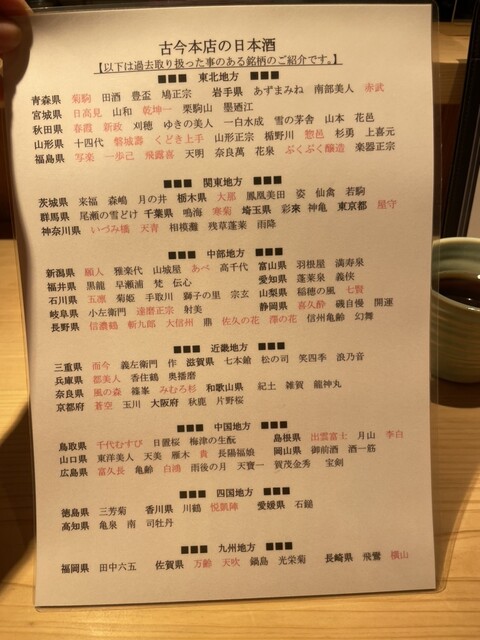 古今本店の日本酒
【以下は過去取り扱った事のある銘柄のご紹介です。】
■■■ 東北地方 ■■■
青森県 菊駒 田酒 豊盃 鳩正宗 岩手県 あずまみね 南部美人 赤武
宮城県 日高見 山和 乾坤一 栗駒山 墨廼江
秋田県 春霞 新政 刈穂 ゆきの美人 一白水成 雪の茅舎 山本 花邑
山形県 十四代 磐城壽 くどき上手 山形正宗 楯野川 惣邑 杉勇 上喜元
福島県 写楽 一歩己 飛露喜 天明 奈良萬 花泉 ぷくぷく醸造 楽器正宗
■■■ 関東地方 ■■■
茨城県 来福 森嶋 月の井 栃木県 大那 鳳凰美田 姿 仙禽 若駒
群馬県 尾瀬の雪どけ 千葉県 鳴海 寒菊 埼玉県 彩來 神亀 東京都 屋守
神奈川県 いづみ橋 天青 相模灘 残草蓬莱 雨降
■■■ 中部地方 ■■■
新潟県 願人 雅楽代 山城屋 あべ 高千代 富山県 羽根屋 満寿泉
福井県 黒龍 早瀬浦 梵 伝心 愛知県 蓬莱泉 義侠
石川県 五凛 菊姫 手取川 獅子の里 宗玄 山梨県 稲穂の風 七賢
岐阜県 小左衛門 達磨正宗 射美 静岡県 喜久酔 磯自慢 開運
長野県 信濃鶴 斬九郎 大信州 鼎 佐久の花 澤の花 信州亀齢 幻舞
■■■ 近畿地方 ■■■
三重県 而今 義左衛門 作 滋賀県 七本鎗 松の司 笑四季 浪乃音
兵庫県 都美人 香住鶴 奥播磨
奈良県 風の森 篠峯 みむろ杉 和歌山県 紀土 雑賀 龍神丸
京都府 蒼空 玉川 大阪府 秋鹿 片野桜
■■■ 中国地方 ■■■
鳥取県 千代むすび 日置桜 梅津の生酛 島根県 出雲富士 月山 李白
山口県 東洋美人 天美 雁木 貴 長陽福娘 岡山県 御前酒 酒一筋
広島県 富久長 亀齢 白鴻 雨後の月 天寶一 賀茂金秀 宝剣
■■■ 四国地方 ■■■
徳島県 三芳菊 香川県 川鶴 悦凱陣 愛媛県 石鎚
高知県 亀泉 南 司牡丹
■■■ 九州地方 ■■■
福岡県 田中六五 佐賀県 万齢 天吹 鍋島 光栄菊 長崎県 飛鸞 横山